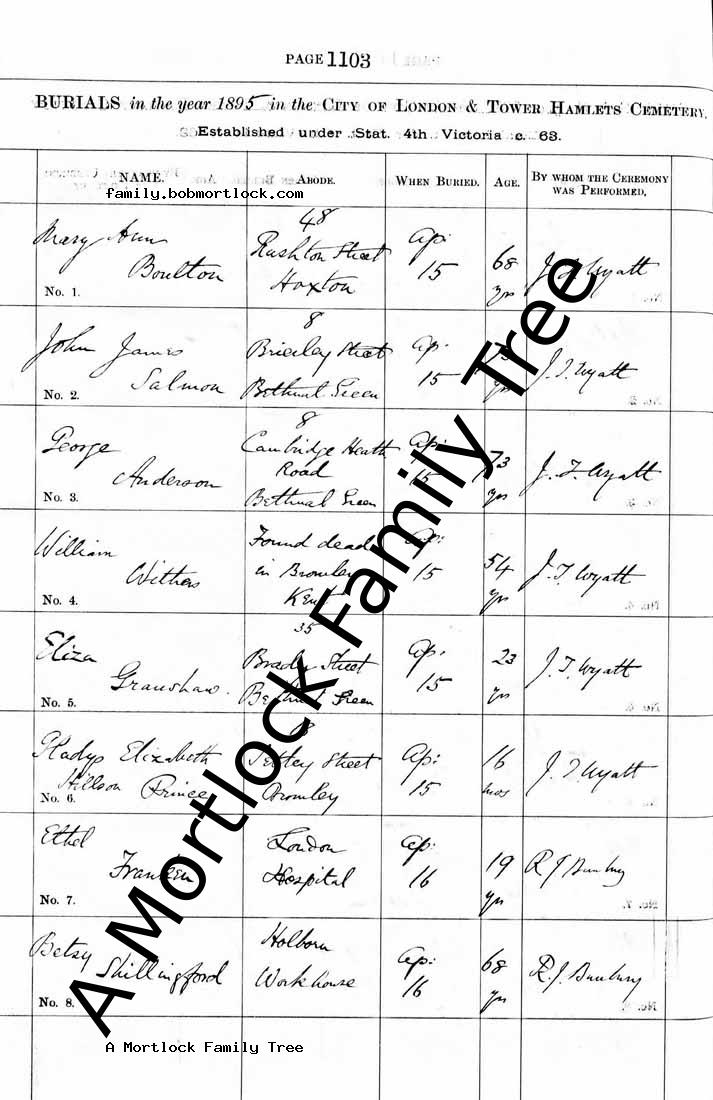 PAGE 1103
BURIALS in the year 1895 in the CITY OF LONDON & TOWER HAMLETS CEMETERY,
Established under Stat. 4th Victoria c. 63.
NAME. ABODE. WHEN BURIED. AGE. BY WHOM THE CEREMONY WAS PERFORMED.
family.bobmortlock.com
48
Mary Ann Rushton Street Ap: 68
Boulton Hoxton 15 yrs J. T. Wyatt
No. 1.
8
John James Brierley Street Ap:
Salmon Bethnal Green 15 yrs J. T. Wyatt
No. 2.
8
George Cambridge Heath Ap: 73
Anderson Road 15 yrs J. T. Wyatt
No. 3. Bethnal Green
William Found dead Ap: 54
Withers in Bromley 15 yrs J. T. Wyatt
No. 4. Kent
35
Eliza Brady Street Ap: 23
Granshaw. Bethnal Green 15 yrs J. T. Wyatt
No. 5.
Gladys Elizabeth Tetley Street Ap: 16
Hillson Prince Bromley 15 mos J. T. Wyatt
No. 6.
Ethel London Ap: 19
Franklin Hospital 16 yrs R J Bunbury
No. 7.
Betsy Holborn Ap: 68
Shillingford Workhouse 16 yrs R. J. Bunbury
No. 8.
A Mortlock Family Tree
A Mortlock Family Tree